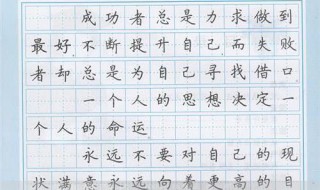 成功者总是力求做到
最好不断提升自己而失败
者却总是为自己寻找借口
一个人的思想决定一
个人的命运
永远不要对自己的现
状满意永远向着更高的目